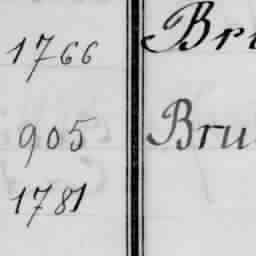 1766 Bri
905 Bru
1781